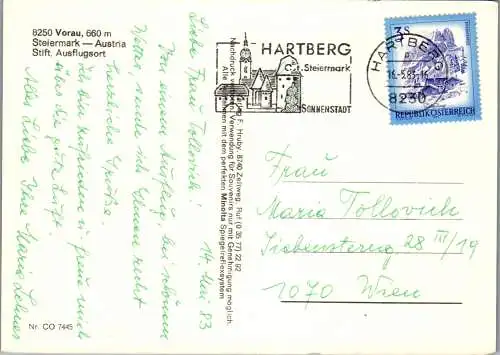 8250 Vorau, 660 m
Steiermark — Austria
Stift. Ausflugsort
HARTBERG
Steiermark
SONNENSTADT
HARTBERG
8230
3s
REPUBLIK ÖSTERREICH
14. Mai 83
Liebe Frau Tollovich!
Von einem Ausflug, bei schönem
Wetter, sende ich Ihnen recht
herzliche Grüße.
Ich bin zufrieden u. freue mich
über die gute Luft.
Alles Liebe Ihre Maria
Frau
Maria Tollovich
28 III/19
1070 Wien
F. Hruby, 8740 Zeltweg, Ruf (0 35 77) 22 92
Nachdruck verboten, Verwendung für Souvenirs nur mit Genehmigung möglich.
Alle mit dem perfekten Minolta Spiegelreflexsystem
Nr. CO 7445